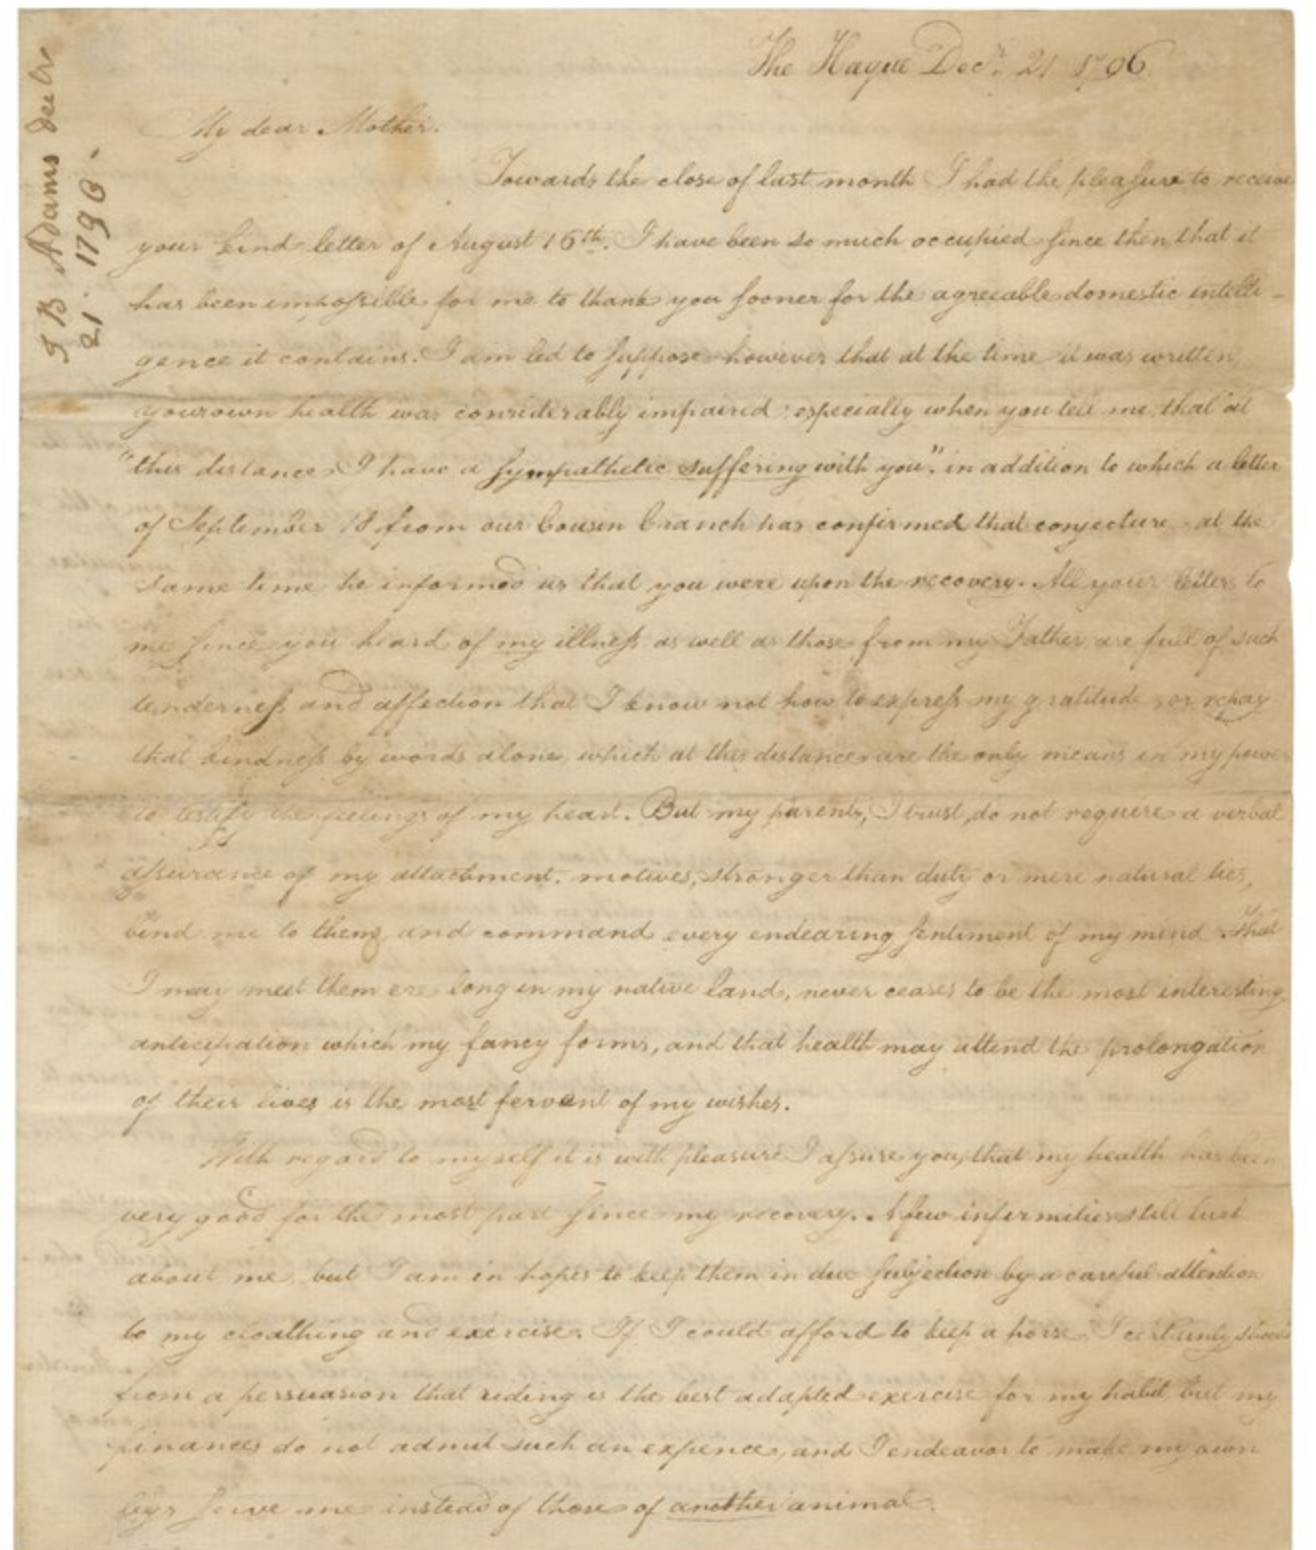 The Hague Decr. 21 1796.
My dear Mother.
Towards the close of last month I had the pleasure to receive
your kind letter of August 16th. I have been so much occupied since then that it
has been impossible for me to thank you sooner for the agreeable domestic intelli-
gence it contains. I am led to suppose however that at the time it was written
your own health was considerably impaired especially when you tell me that "at
"this distance I have a sympathetic suffering with you". in addition to which a letter
of September 18 from our Cousin Cranch has confirmed that conjecture at the
same time he informed us that you were upon the recovery. All your letters to
me since you heard of my illness as well as those from my Father are full of such
tenderness and affection that I know not how to express my gratitude, or repay
that kindness by words alone, which at this distance are the only means in my power
to testify the feelings of my heart. But my parents, I trust, do not require a verbal
assurance of my attachment. motives, stronger than duty or mere natural ties,
bind me to them, and command every endearing sentiment of my mind. That
I may meet them ere long in my native land, never ceases to be the most interesting
anticipation which my fancy forms, and that health may attend the prolongation
of their lives is the most fervent of my wishes.
With regard to myself it is with pleasure I assure you, that my health has been
very good for the most part since my recovery. A few infirmities still lurk
about me, but I am in hopes to keep them in due subjection by a careful attention
to my cloathing and exercise. If I could afford to keep a horse I certainly should
from a persuasion that riding is the best adapted exercise for my habit, but my
finances do not admit such an expence, and I endeavor to make my own
legs serve me instead of those of another animal.
T B Adams decbr
21. 1796.